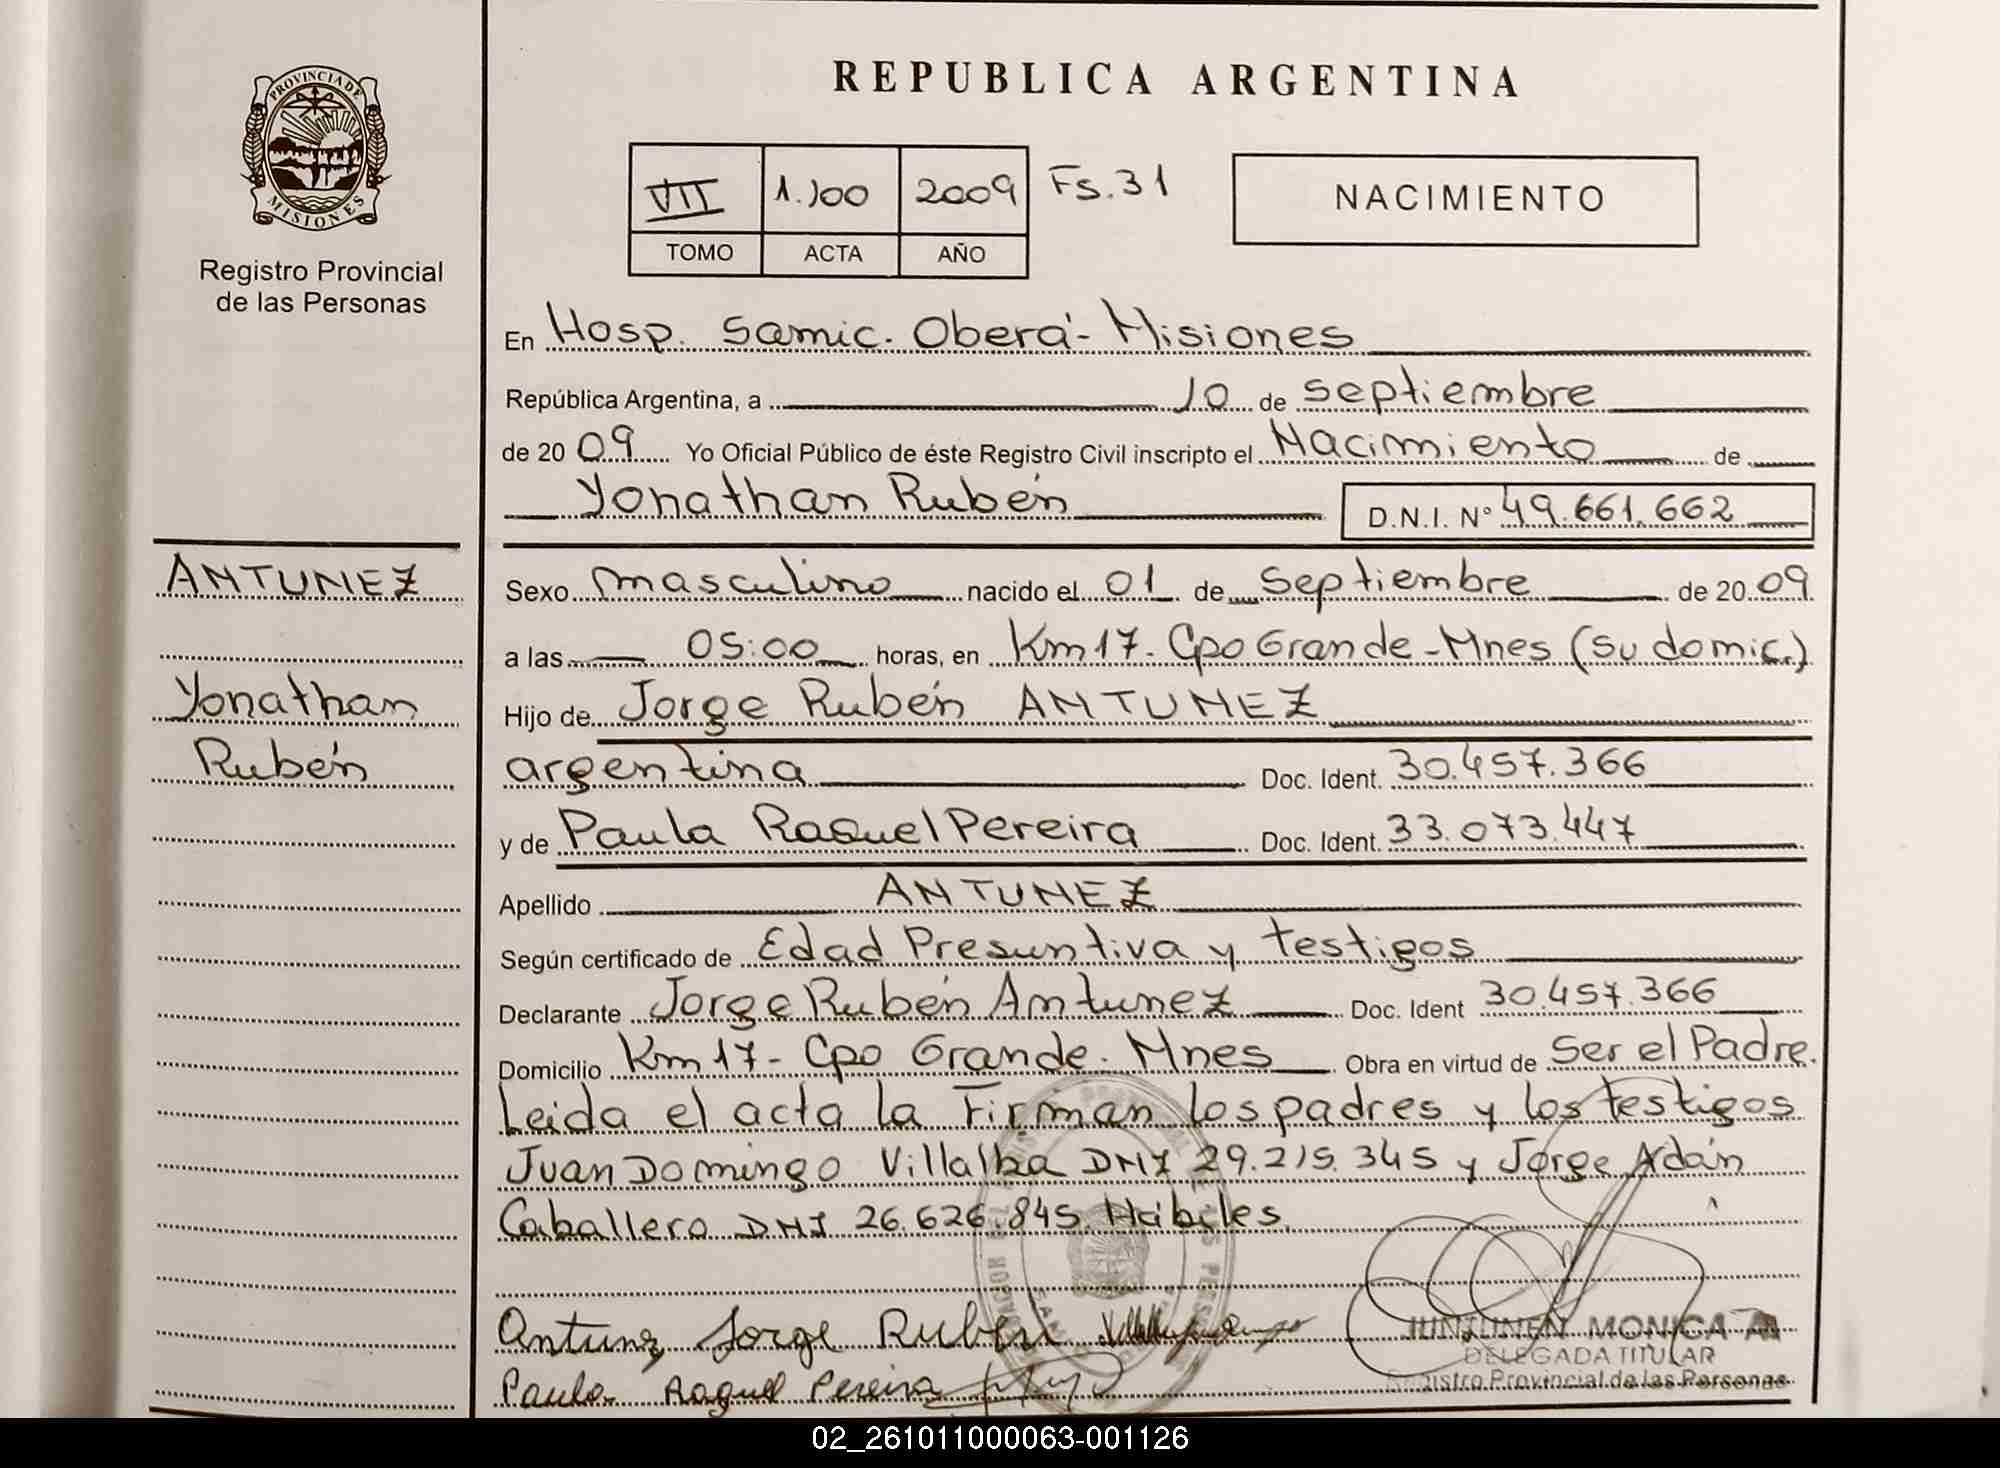 PROVINCIA DE
MISIONES
Registro Provincial
de las Personas
ANTUNEZ
Yonathan
Rubén
REPUBLICA ARGENTINA
VII 1.100 2009 Fs. 31
TOMO ACTA AÑO
NACIMIENTO
En Hosp. Samic. Oberá - Misiones
República Argentina, a 10 de septiembre
de 20 09 Yo Oficial Público de éste Registro Civil inscripto el Nacimiento de
Yonathan Rubén D.N.I. N° 49.661.662
Sexo masculino nacido el 01 de septiembre de 20 09
a las 05:00 horas, en Km 17. Cpo Grande - Mnes (su domic.)
Hijo de Jorge Rubén ANTUNEZ
argentina Doc. Ident. 30.457.366
y de Paula Raquel Pereira Doc. Ident. 33.073.447
Apellido ANTUNEZ
Según certificado de Edad Presuntiva y testigos
Declarante Jorge Rubén Antunez Doc. Ident 30.457.366
Domicilio Km 17 - Cpo Grande. Mnes Obra en virtud de Ser el Padre.
Leida el acta la Firman los padres y los testigos
Juan Domingo Villalba DNI 29.215.345 y Jorge Adán
Caballero DNI 26.626.845. Hábiles.
Antunez Jorge Rubén
Paula Raquel Pereira
JUNTUNEN MONICA A
DELEGADA TITULAR
Registro Provincial de las Personas
02_261011000063-001126